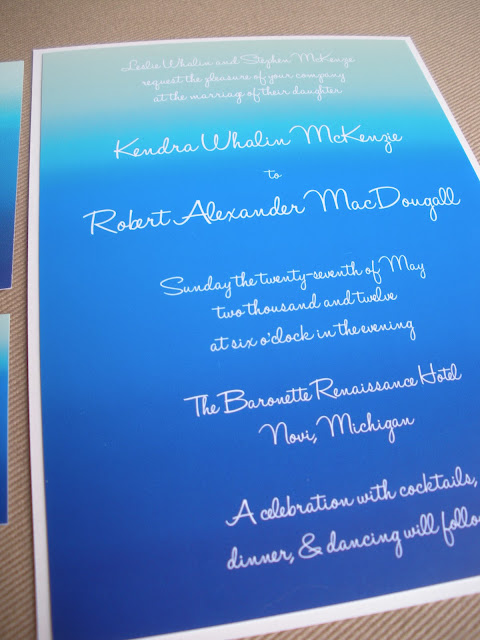 Leslie Whalin and Stephen McKenzie
request the pleasure of your company
at the marriage of their daughter
Kendra Whalin McKenzie
to
Robert Alexander MacDougall
Sunday the twenty-seventh of May
two thousand and twelve
at six o'clock in the evening
The Baronette Renaissance Hotel
Novi, Michigan
A celebration with cocktails,
dinner, & dancing will follo